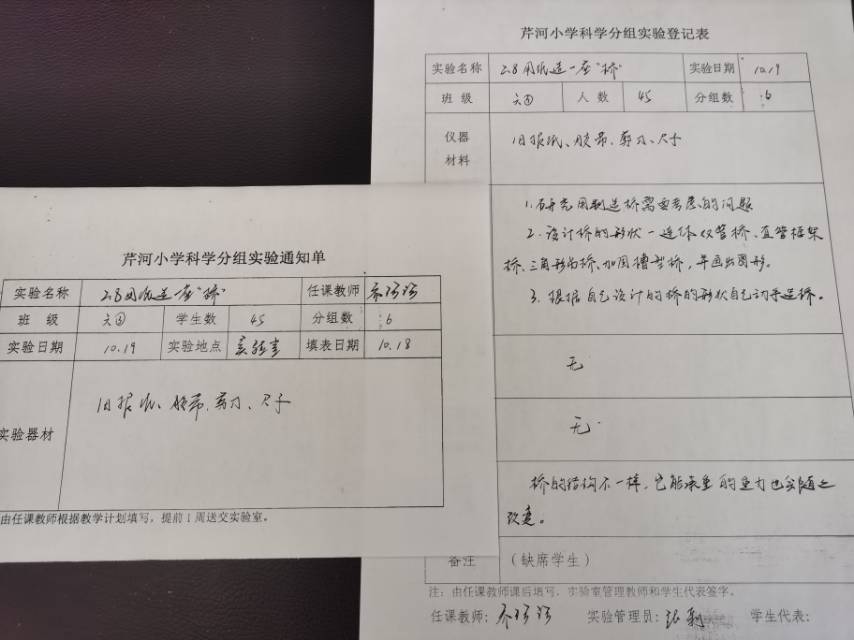 芹河小学科学分组实验登记表
实验名称 2.8用纸造一座"桥" 实验日期 10.19
班级 六④ 人数 45 分组数 6
仪器材料 旧报纸、胶带、剪刀、尺子
1.研究用制造桥需要考虑的问题
2.设计桥的形状一连体双管桥、直管框架
桥、三角形的桥、加固槽型桥,并画出图形。
3.根据自己设计的桥的形状自己动手造桥。
无
无.
桥的结构不一样,它能承重的重力也会随之
改变。
备注 (缺席学生)
注:由任课教师课后填写,实验室管理教师和学生代表签字。
任课教师: 实验管理员: 学生代表:
芹河小学科学分组实验通知单
实验名称 2.8用纸造一座"桥" 任课教师
班级 六④ 学生数 45 分组数 6
实验日期 10.19 实验地点 实验室 填表日期 10.18
实验器材 旧报纸、胶带、剪刀、尺子
由任课教师根据教学计划填写,提前1周送交实验室。